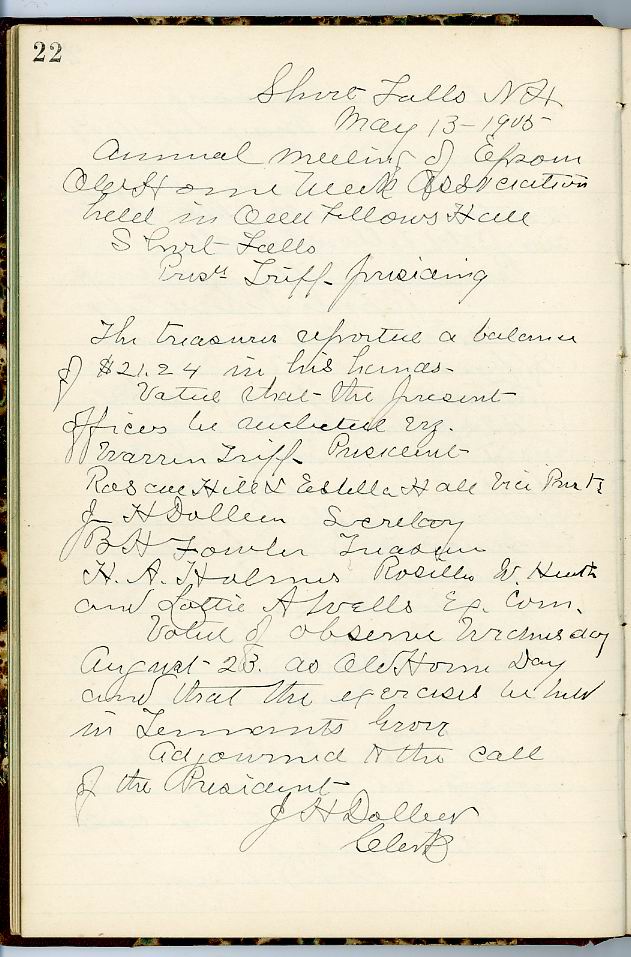 22
Short Falls N H
May 13 - 1905
Annual meeting of Epsom
Old Home Week Association
held in Odd Fellows Hall
Short Falls
Prest Tripp presiding
The treasurer reported a balance
of $21.24 in his hands -
Voted that the present
officers be reelected viz.
Warren Tripp President
Roscoe Hill & Estella Hall Vice Prests
J H Dolbeer Secretary
B H Fowler Treasurer
H. A. Holmes Rosilla W.
and Lottie A Wells Ex. Com.
Voted to observe Wednesday
August 23. as Old Home Day
and that the exercises be held
in Tennants Grove
Adjourned to the call
of the President
J H Dolbeer
Clerk